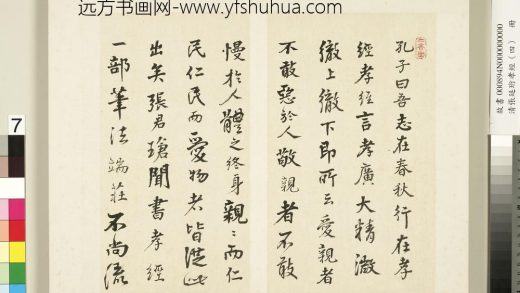 远方书画网-www.yfshuhua.com
孔子曰吾志在春秋行在孝
經孝經言孝廣大精微
徹上徹下即所云愛親者
不敢惡於人敬親者不敢
慢於人體之終身親〻而仁
民仁民而愛物者皆從此
出矣張君瑭聞書孝經
一部筆法端莊不尚流
故書 000894N000000000
清張廷珩孝經(四) 冊
7